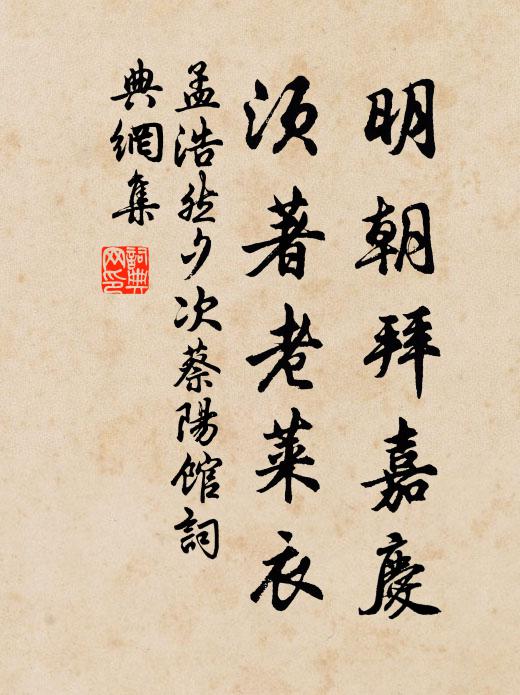 明朝拜嘉慶
須著老萊衣
孟浩然夕次蔡陽館詞
典網集
詞典
网印